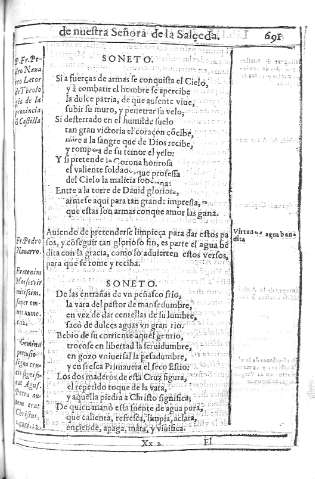 de nuestra Señora de la Salçeda. 691
P. Fr. Pe-
dro Nava
rro Letor
de Teolo
gia de la
prouincia
d Castilla
SONETO.
Si a fuerças de armas se conquista el Cielo,
y à combatir el hombre se apercibe
la dulce patria, de que ausente viue,
subir su muro, y penetrar su velo;
Si desterrado en el humilde suelo
tan gran victoria el coraçon cõcibe,
mire a la sangre que de Dios recibe,
y rompera de su temor el yelo:
Y si pretende la Corona honrosa
el valiente soldado, que professa
del Cielo la milicia
Entre a la torre de Dauid gloriosa,
arme se aqui para tan grande impressa,
que estas son armas con que amor las gana.
Auiendo de pretenderse limpieza para dar estos pa
sos, y coseguir tan glorioso fin, es parte el agua bẽ
dita con la gracia, como lo aduierten estos versos,
para que se tome y reciba.
agua ben
dita
Fr. Pedro
Nauarro.
SONETO.
De las entrañas de vn peñasco frio,
la vara del pastor de mansedumbre,
en vez de dar centellas de su lumbre,
sacò de dulces aguas vn gran rio.
Bebio de su corriente aquel gentio,
trocose en libertad la seruidumbre,
en gozo vniuersal la pesadumbre,
y en fresca Primauera el seco Estio.
Los dos maderos de esta Cruz figura,
el repetido toque de la vara,
y aquella piedra a Christo significa;
De quien manò essa fuente de agua pura,
que calienta, refresca, limpia, aclara,
enciende, apaga, mata, y viuifica.
Xx 2 El